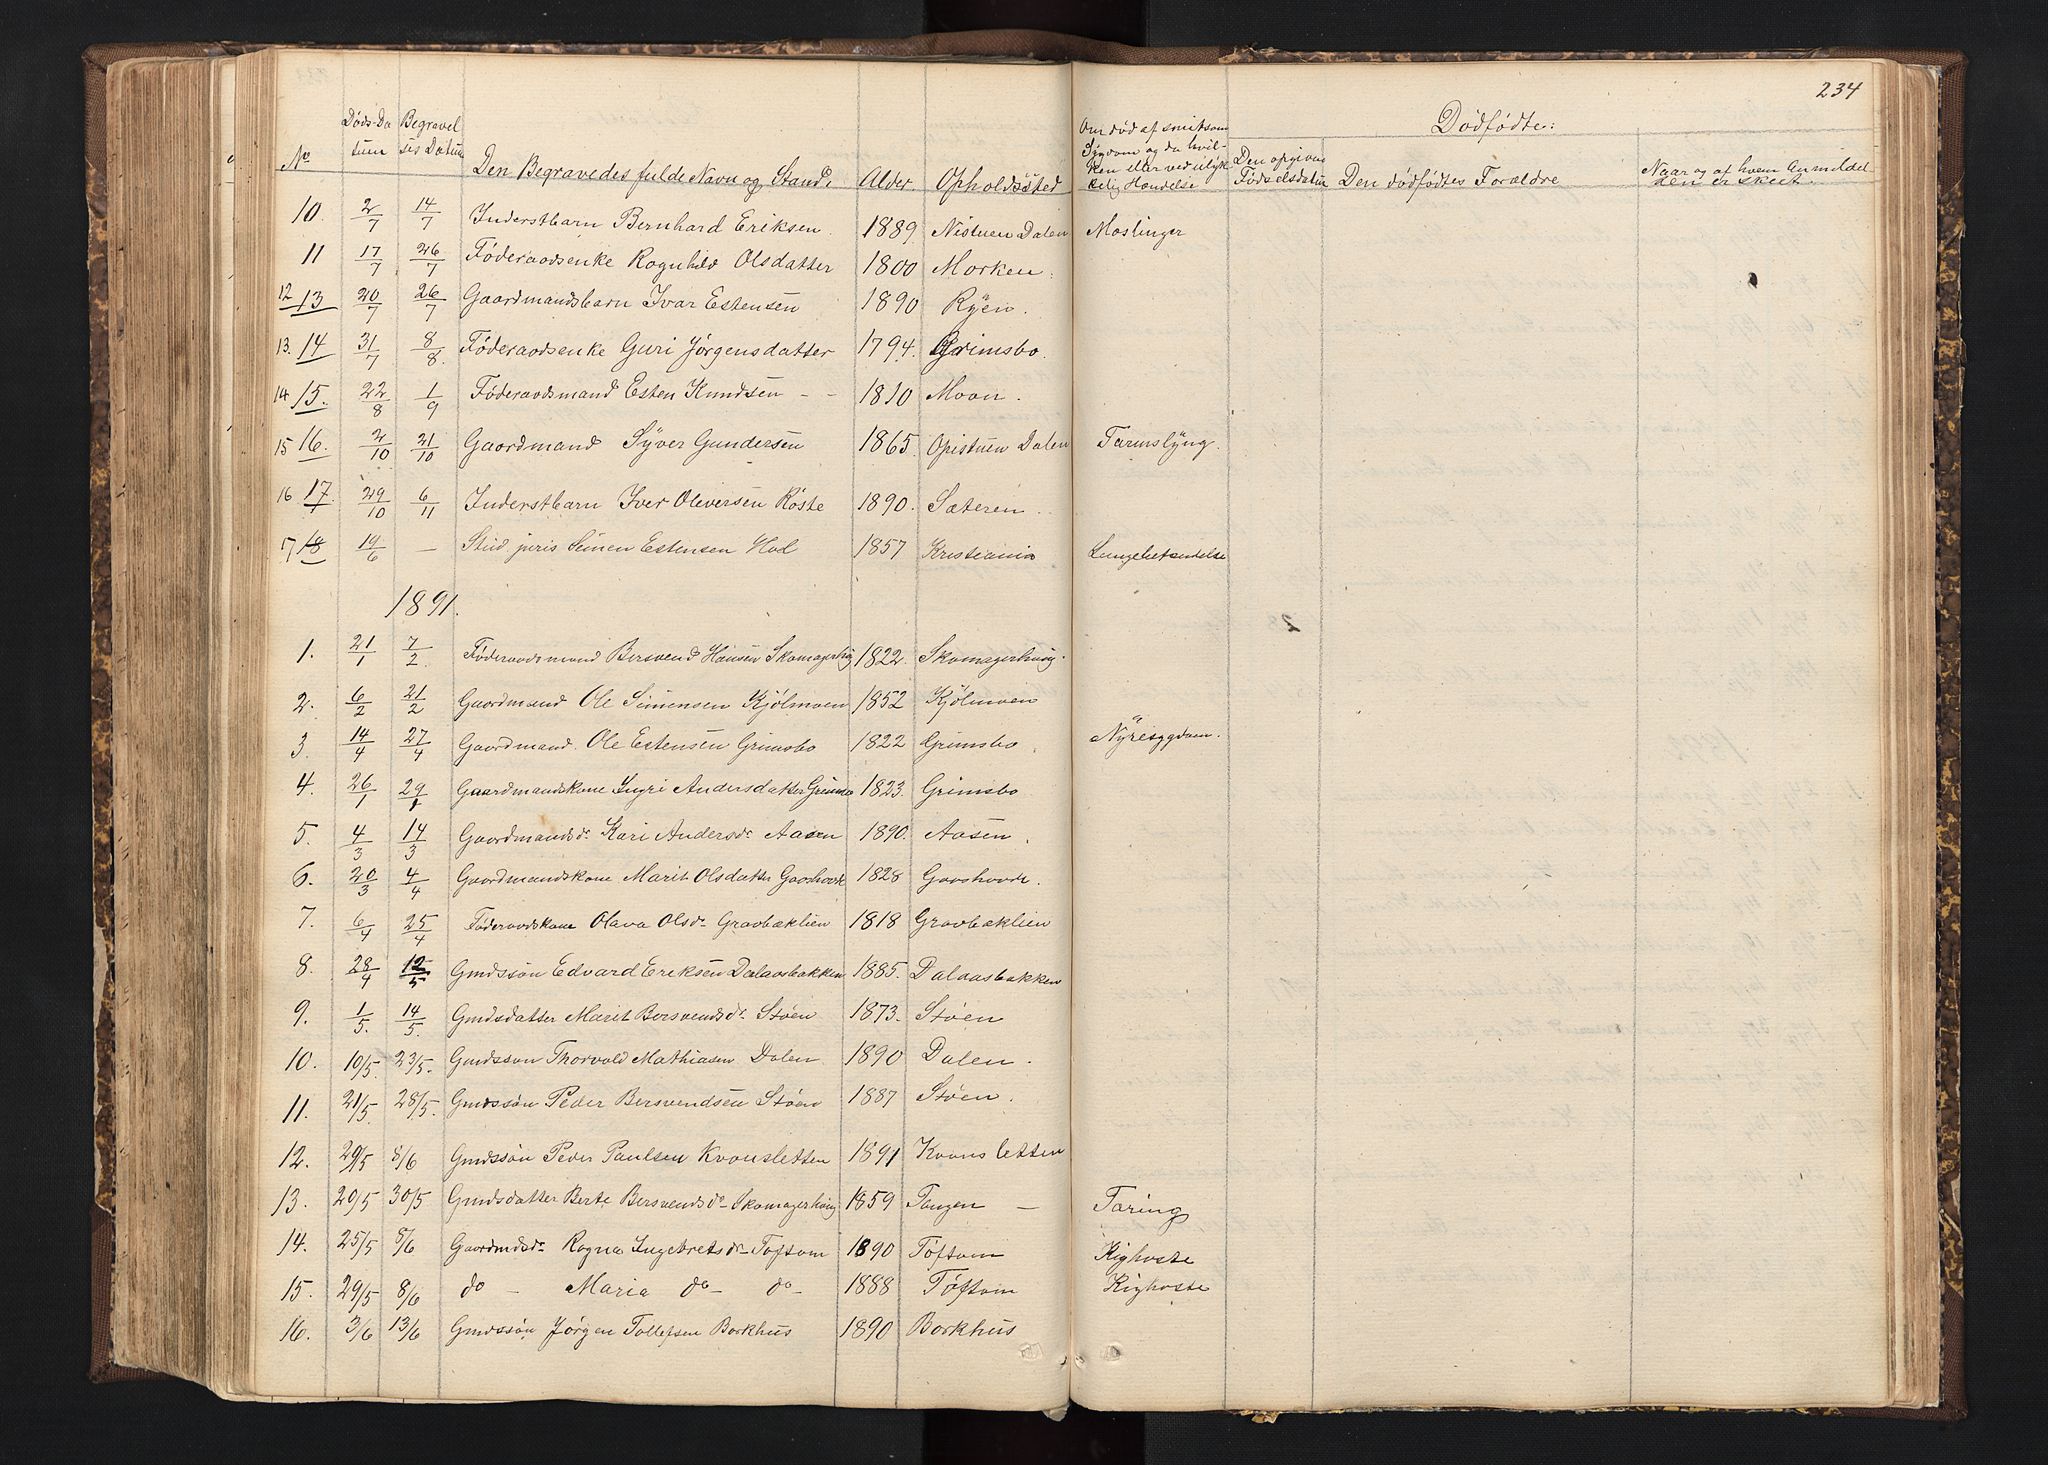 234
No
Døds-Da
tum
Begravel
ses Datum
Den Begravedes fulde Navn og Stand.
Alder.
Opholdssted
Om død af smitsom
Sygdom og da hvil-
ken eller ved ulyk-
kelig Hændelse
Dødfødte:
Den opgivne
Fødselsdatum
Den dødfødtes Forældre
Naar og af hvem Anmeldel
den er skeet.
10. 2/7 14/7 Inderstbarn Bernhard Eriksen. 1889 Nistuen Dalen Meslinger
11 17/7 26/7 Føderaadsenke Ragnhild Olsdatter 1800 Morken.
12 13 20/7 26/7 Gaardmandsbarn Ivar Estensen 1890 Ryen.
13. 14 31/7 8/8 Føderaadsenke Guri Jørgensdatter 1794. Grimsbo.
14 15. 22/8 1/9 Føderaadsmand Esten Knudsen - - 1810 Moan.
15 16. 2/10 21/10 Gaardmand Syver Gundersen 1865. Opistuen Dalen Tarmslyng.
16 17. 29/10 6/11 Inderstbarn Iver Oleversen Røste 1890. Sæteren.
17 18 19/6 — Stud. juris Simen Estensen Hol 1857 Kristiania Lungebetændelse
1891.
1. 21/1 7/2. Føderaadsmand Bersvend Hansen Skomagerhaug 1822. Skomagerhaug.
2. 6/2 21/2 Gaardmand Ole Simensen Kjølmoen 1852 Kjølmoen
3. 14/4 27/4 Gaardmand. Ole Estensen Grimsbo 1822 Grimsbo. Nyresygdom.
4. 26/1 29/1 Gaardmandskone Ingri Andersdatter Grimsbo 1823. Grimsbo
5. 4/3 14/3 Gaardmandsdr Kari Andersdr Aasen 1890. Aasen.
6. 20/3 4/4 Gaardmandskone Marit Olsdatter Gaashovde 1828 Gaashovde.
7. 6/4 25/4 Føderaadskone Olava Olsdr Gravbæklien 1818 Gravbæklien
8. 28/4 12/5 Gmdssøn Edvard Eriksen Dalaasbakken 1885. Dalaasbakken
9. 1/5. 14/5. Gmdsdatter Marit Bersvendsdr Støen 1873. Støen
10. 10/5. 23/5. Gmdssøn Thorvald Mathiasen Dalen 1890 Dalen.
11. 21/5. 28/5. Gmdssøn Peder Bersvendsen Støen 1887 Støen.
12. 29/5 8/6 Gmdssøn Peder Paulsen Kvansletten 1891 Kvansletten
13. 20/5 30/5 Gmdsdatter Berte Bersvendsdr Skomagerhaug 1859 Tangen — Tæring
14. 25/5 8/6 Gaardmdsdr Ragna Ingebretsdr Toftom 1890 Tøftom Kighoste
15. 29/5 8/6 do - Maria do - do - 1888 Tøftom Kighoste
16. 3/6 13/6 Gmdssøn Jørgen Tollefsen Borkhus 1890 Borkhus